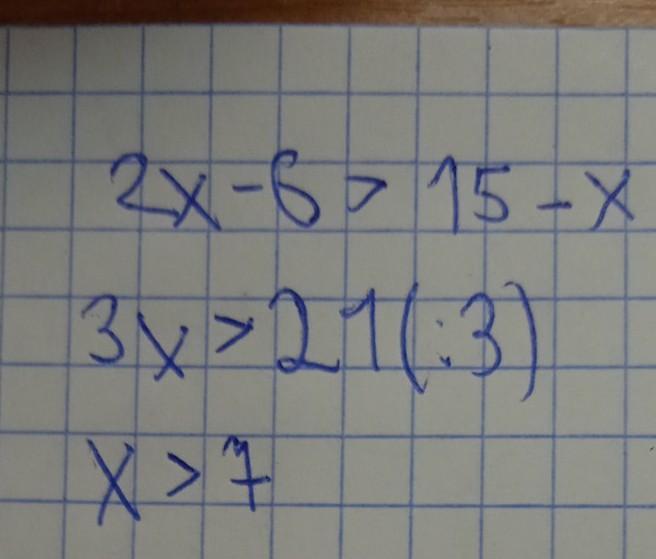 2x-6> 15-x
3x>21(:3)
x>7